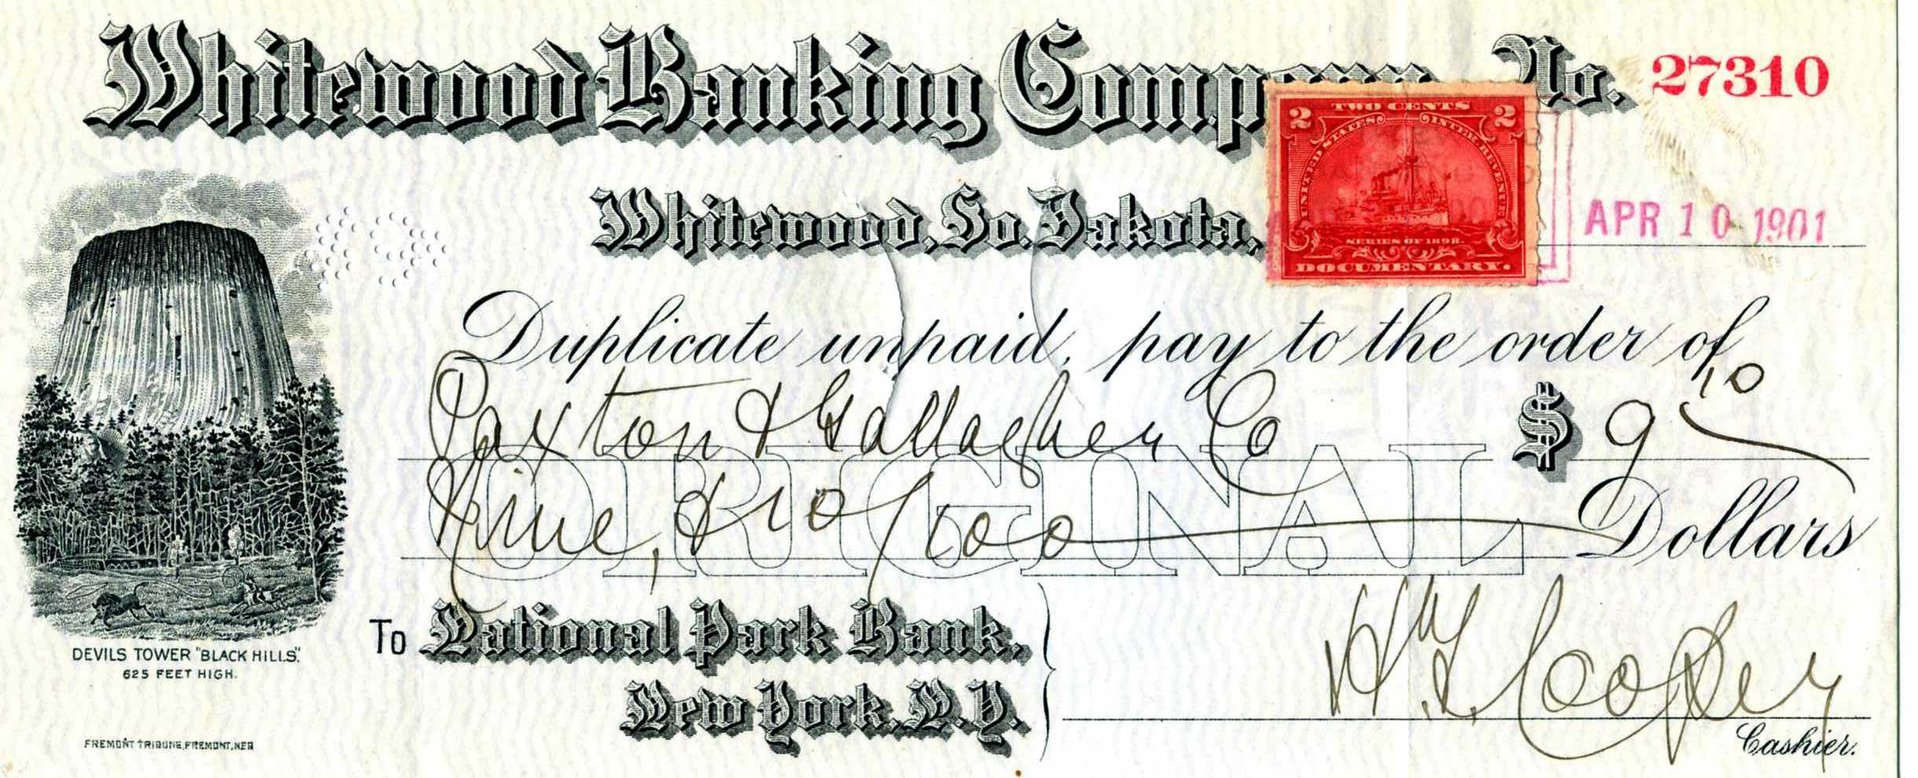 Whitewood Banking Company No. 27310
2 TWO CENTS 2
UNITED STATES INTER. REVENUE
SERIES OF 1898
DOCUMENTARY.
Whitewood, So. Dakota, APR 10 1901
Duplicate unpaid, pay to the order of
Paxton & Gallagher Co $ 9 10
Nine, & 10/100 Dollars
ORIGINAL
To National Park Bank,
New York, N.Y.
Cooper
Cashier.
DEVILS TOWER "BLACK HILLS".
625 FEET HIGH.
FREMONT TRIBUNE, FREMONT, NEB